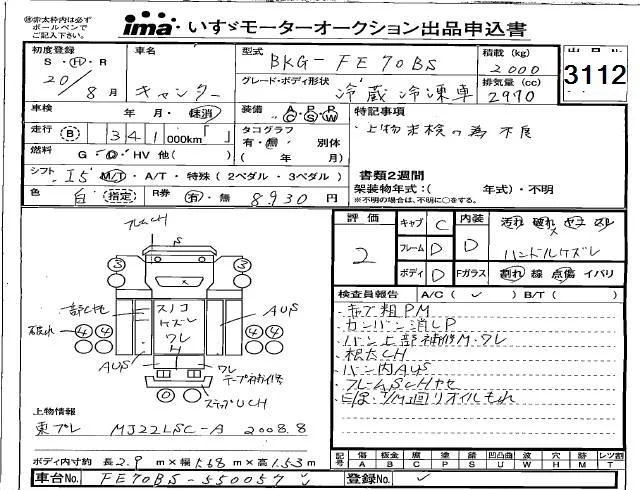 ㊟赤太枠内は必ず
ボールペンで
ご記入下さい。
ima いすゞモーターオークション出品申込書
初度登録
S・H・R
20/8月
車名
キャンター
型式
BKG-FE70BS
グレード・ボディ形状
冷蔵冷凍車
積載(kg)
2000
排気量(cc)
2970
出品No.
3112
車検
年・月・抹消
走行 B 341,000km「 」
燃料 G・D・HV 他( )
シフト I5 M/T・A/T・特殊(2ペダル・3ペダル)
色 白 指定
R券 有・無 8930円
装備
A C・P S・R W
タコグラフ
有・無 別体
( 年 月)
特記事項
・上物未検の為不良
書類2週間
架装物年式:( 年式)・不明
※不明の場合は、不明に○をする。
評価
2
キャブ C
フレーム D
ボディ D
内装 D
汚れ 破れ ヤラ スレ
ハンドルケズレ
Fガラス 割れ 線 点傷 イバリ
検査員報告 A/C( ✓ ) B/T( )
・キャブ粗PM
・カンバン消しP
・バン上部補修M・ワレ
・根太CH
・バン内AUS
・フレームSCHヤセ
フレームCH
S
3 3
スノコ
ケズレ
ワレ
H
AUS
4 4 4 4
AUS
ワレ
テープ補修
ステップUCH
上物情報
東プレ MJ22LSC-A 2008.8
ボディ内寸約 長2.9m×幅1.68m×高1.53m
車台No. FE70BS-550057
記号 傷A 板金B 腐C 塗P 錆S 凹凸曲U 波W 穴H 跡M レンズ割T